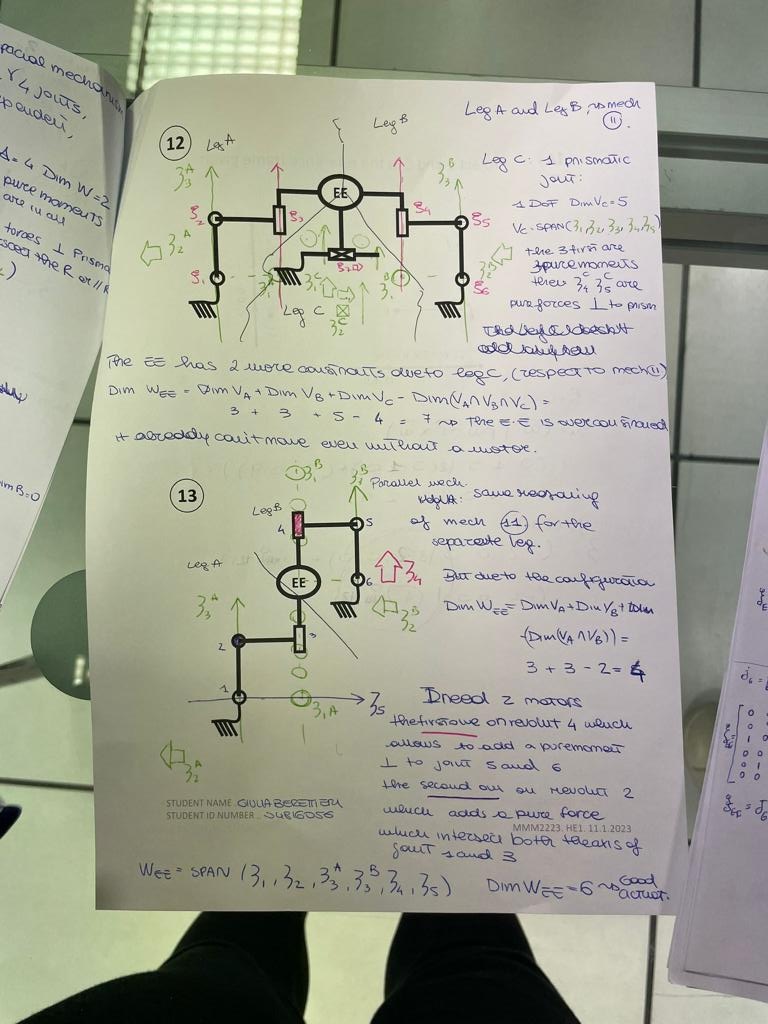 spacial mechanism
4 joints,
ependent,
A = 4 Dim W = 2
pure moments
are in all
forces ⊥ Prisma
im B = 0
Leg A and Leg B, ⇝ mech
11.
12
Leg A
Leg B
Leg C: 1 prismatic
joint:
1 DOF Dim Vc = 5
Vc = SPAN(ʒ1, ʒ2, ʒ3, ʒ4, ʒ5)
the 3 first are
pure moments
then ʒ4^C ʒ5^C are
pure forces ⊥ to prism
EE
Leg C
The EE has 2 more constraints due to leg C, (respect to mech 11)
Dim WEE = Dim VA + Dim VB + Dim VC - Dim(VA∩VB∩VC) =
3 + 3 + 5 - 4 = 7 ⇝ The E.E is overconstrained
it already can't move even without a motor.
13
Parallel mech.
Leg B
same reasoning
of mech 11 for the
separate leg.
Leg A
EE
But due to the configuration
Dim WEE = Dim VA + Dim VB +
-(Dim(VA∩VB)) =
3 + 3 - 2 = 4
I need 2 motors
the first one on revolut 4 which
allows to add a pure moment
⊥ to joint 5 and 6
the second one on revolut 2
which adds a pure force
which intersect both the axis of
joint 1 and 3
STUDENT NAME. GIULIA
STUDENT ID NUMBER.
MMM2223. HE1. 11.1.2023
WEE = SPAN (ʒ1, ʒ2, ʒ3^A, ʒ3^B, ʒ4, ʒ5) Dim WEE = 6 ⇝ Good
actuat.